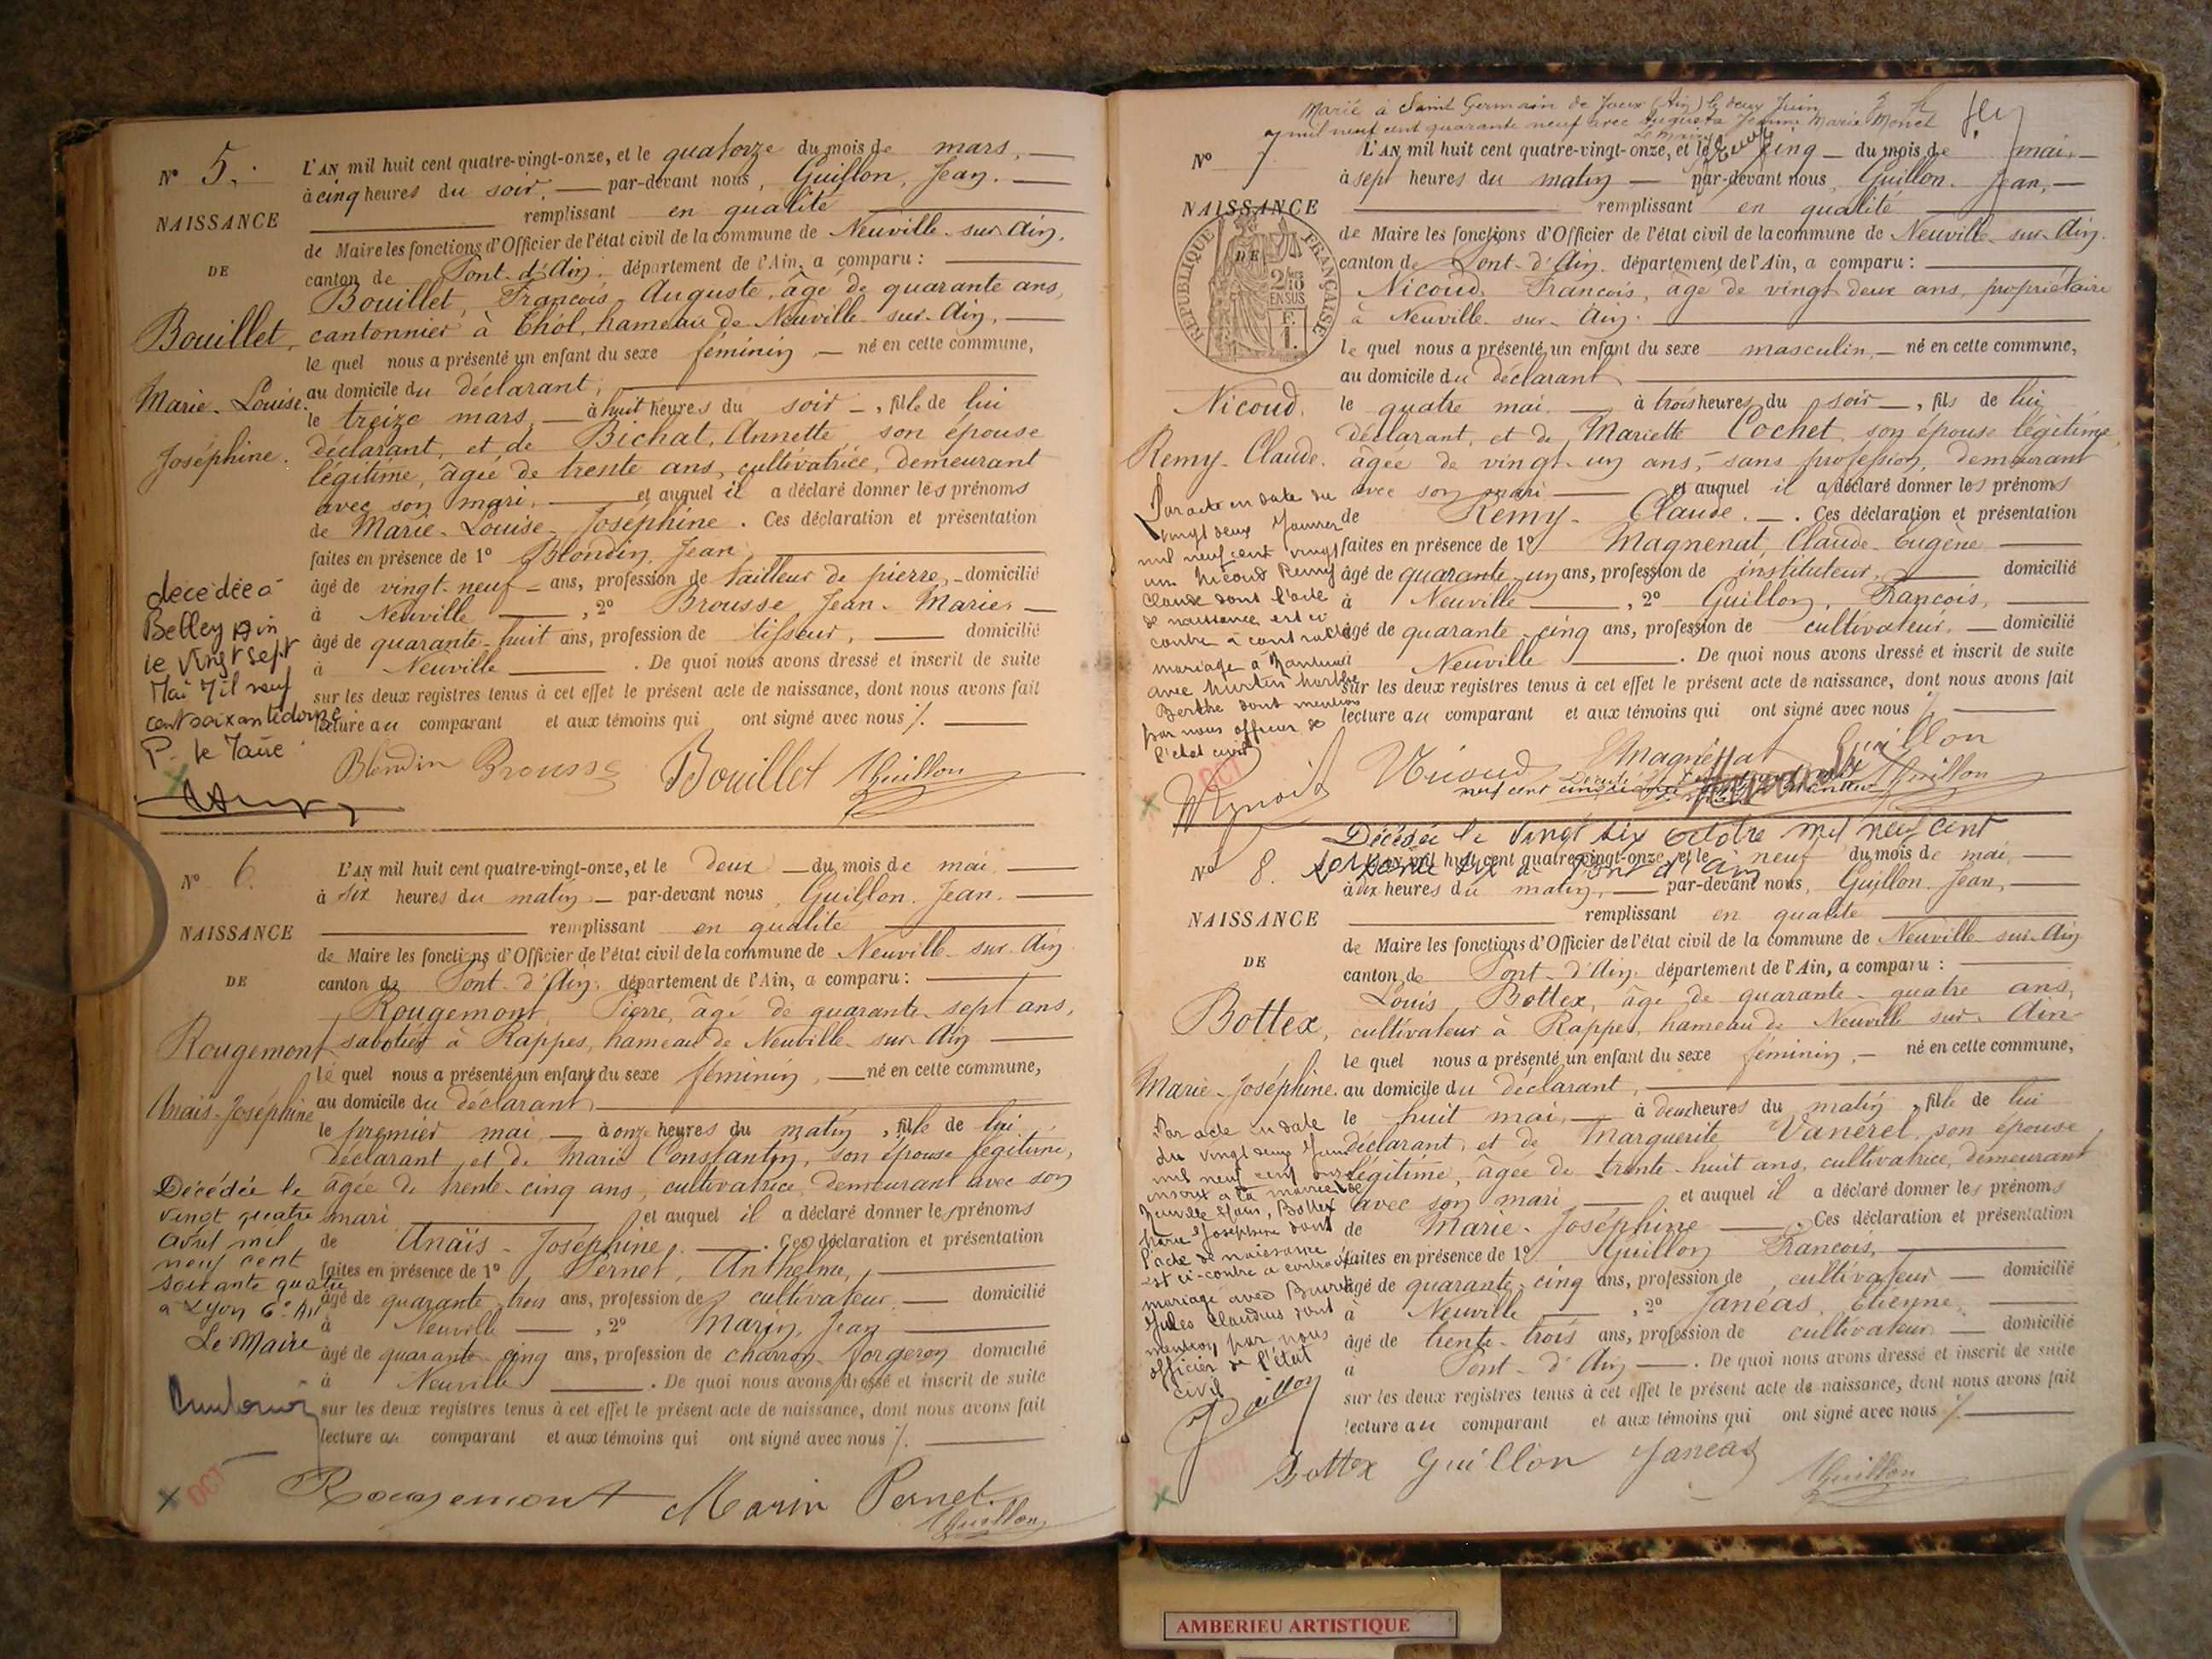 N° 5.
NAISSANCE
DE
Bouillet,
Marie-Louise
Joséphine.
L'AN mil huit cent quatre-vingt-onze, et le quatorze du mois de mars,
à cinq heures du soir par-devant nous, Guillon, Jean.
remplissant en qualité
de Maire les fonctions d'Officier de l'état civil de la commune de Neuville-sur-Ain.
canton de Pont-d'Ain, département de l'Ain, a comparu :
Bouillet, François Auguste, âgé de quarante ans,
cantonnier à Thol, hameau de Neuville-sur-Ain,
le quel nous a présenté un enfant du sexe féminin, né en cette commune,
au domicile du déclarant,
le treize mars, à huit heures du soir, fille de lui
déclarant, et de Bichat, Annette, son épouse
légitime, âgée de trente ans, cultivatrice, demeurant
avec son mari, et auquel il a déclaré donner les prénoms
de Marie-Louise-Joséphine. Ces déclaration et présentation
faites en présence de 1° Blondin, Jean,
âgé de vingt-neuf ans, profession de tailleur de pierre, domicilié
à Neuville, 2° Brousse, Jean-Marie,
âgé de quarante-huit ans, profession de tisseur, domicilié
à Neuville. De quoi nous avons dressé et inscrit de suite
sur les deux registres tenus à cet effet le présent acte de naissance, dont nous avons fait
lecture au comparant et aux témoins qui ont signé avec nous
décédée à
Belley Ain
le vingt sept
Mai Mil neuf
cent soixante douze
P. le Maire
Blondin Brousse Bouillet Guillon
N° 6.
NAISSANCE
DE
Rougemont
Anaïs-Joséphine
L'AN mil huit cent quatre-vingt-onze, et le deux du mois de mai,
à six heures du matin par-devant nous, Guillon, Jean.
remplissant en qualité
de Maire les fonctions d'Officier de l'état civil de la commune de Neuville-sur-Ain
canton de Pont-d'Ain, département de l'Ain, a comparu :
Rougemont, Pierre, âgé de quarante-sept ans,
sabotier à Rappes, hameau de Neuville-sur-Ain
le quel nous a présenté un enfant du sexe féminin, né en cette commune,
au domicile du déclarant,
le premier mai, à onze heures du matin, fille de lui
déclarant, et de Marie Constantin, son épouse légitime,
âgée de trente-cinq ans, cultivatrice, demeurant avec son
mari et auquel il a déclaré donner les prénoms
de Anaïs-Joséphine. Ces déclaration et présentation
faites en présence de 1° Pernet, Anthelme,
âgé de quarante-trois ans, profession de cultivateur, domicilié
à Neuville, 2° Marin, Jean
âgé de quarante-cinq ans, profession de charron-forgeron domicilié
à Neuville. De quoi nous avons dressé et inscrit de suite
sur les deux registres tenus à cet effet le présent acte de naissance, dont nous avons fait
lecture au comparant et aux témoins qui ont signé avec nous
Décédée le
vingt quatre
avril mil
neuf cent
soixante quatre
à Lyon 6e Arr
Le Maire
OCT
Rougemont Marin Pernet
Guillon
Marié à Saint Germain de Joux (Ain) le deux Juin
mil neuf cent quarante neuf avec Augusta Jeanne Marie Monet
Le Maire
N° 7
NAISSANCE
DE
RÉPUBLIQUE FRANÇAISE
2/10 EN SUS
F. 1.
Nicoud,
Remy-Claude.
L'AN mil huit cent quatre-vingt-onze, et le cinq du mois de mai,
à sept heures du matin par-devant nous, Guillon Jean,
remplissant en qualité
de Maire les fonctions d'Officier de l'état civil de la commune de Neuville-sur-Ain.
canton de Pont-d'Ain, département de l'Ain, a comparu :
Nicoud, François, âgé de vingt-deux ans, propriétaire
à Neuville-sur-Ain.
le quel nous a présenté un enfant du sexe masculin, né en cette commune,
au domicile du déclarant
le quatre mai à trois heures du soir, fils de lui
déclarant, et de Mariette Cochet, son épouse légitime,
âgée de vingt-un ans, sans profession, demeurant
avec son mari et auquel il a déclaré donner les prénoms
de Remy-Claude. Ces déclaration et présentation
faites en présence de 1° Magnenat, Claude-Eugène
âgé de quarante-un ans, profession de instituteur, domicilié
à Neuville, 2° Guillon, François,
âgé de quarante-cinq ans, profession de cultivateur, domicilié
Neuville. De quoi nous avons dressé et inscrit de suite
sur les deux registres tenus à cet effet le présent acte de naissance, dont nous avons fait
lecture au comparant et aux témoins qui ont signé avec nous
Par acte en date du
vingt deux Janvier
mil neuf cent vingt
un Nicoud Remy
Claude dont l'acte
de naissance est ci
contre a contracté
mariage à Nantua
avec
Berthe dont mention
par nous officier de
l'état civil
OCT
Nicoud Magnenat Guillon
Guillon
Décédée le vingt six octobre mil neuf cent
soixante six à Pont d'Ain
N° 8.
NAISSANCE
DE
Bottex,
Marie-Joséphine.
L'AN mil huit cent quatre-vingt-onze, et le neuf du mois de mai,
à dix heures du matin, par-devant nous, Guillon, Jean,
remplissant en qualité
de Maire les fonctions d'Officier de l'état civil de la commune de Neuville-sur-Ain
canton de Pont-d'Ain, département de l'Ain, a comparu :
Louis Bottex, âgé de quarante-quatre ans,
cultivateur à Rappes, hameau de Neuville-sur-Ain
le quel nous a présenté un enfant du sexe féminin, né en cette commune,
au domicile du déclarant,
le huit mai, à deux heures du matin, fille de lui
déclarant, et de Marguerite Vanerel, son épouse
légitime, âgée de trente-huit ans, cultivatrice, demeurant
avec son mari et auquel il a déclaré donner les prénoms
de Marie-Joséphine. Ces déclaration et présentation
faites en présence de 1° Guillon François,
âgé de quarante-cinq ans, profession de cultivateur domicilié
à Neuville, 2° Janéas, Etienne,
âgé de trente-trois ans, profession de cultivateur domicilié
à Pont-d'Ain. De quoi nous avons dressé et inscrit de suite
sur les deux registres tenus à cet effet le présent acte de naissance, dont nous avons fait
lecture au comparant et aux témoins qui ont signé avec nous
Par acte en date
du vingt deux
mil neuf cent onze
inscrit à la mairie de
Bottex
Marie Joséphine dont
l'acte de naissance
est ci-contre a contracté
mariage avec
Jules Claudius dont
mention par nous
officier de l'état
civil
Bottex Guillon Janéas
Guillon
AMBERIEU ARTISTIQUE